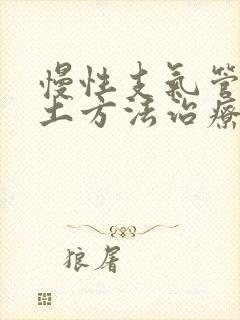 慢性支氣管
土方法治療
狼屠